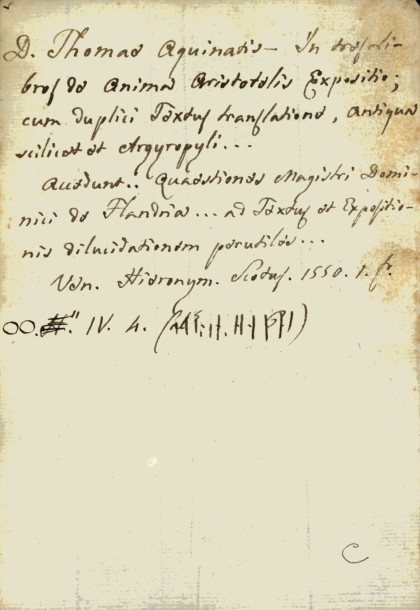 D. Thomae Aquinatis — In tres li-
bros de Anima Aristotelis Expositio;
cum duplici Textus translatione, Antiqua
scilicet et Argyropyli...
Accedunt.. Quaestiones Magistri Domi-
nici de Flandria... ad Textus et Expositio-
nis dilucidationem perutiles...
Ven. Hieronym. Scotus. 1550. 1. f.
OO. IV. 4.
C